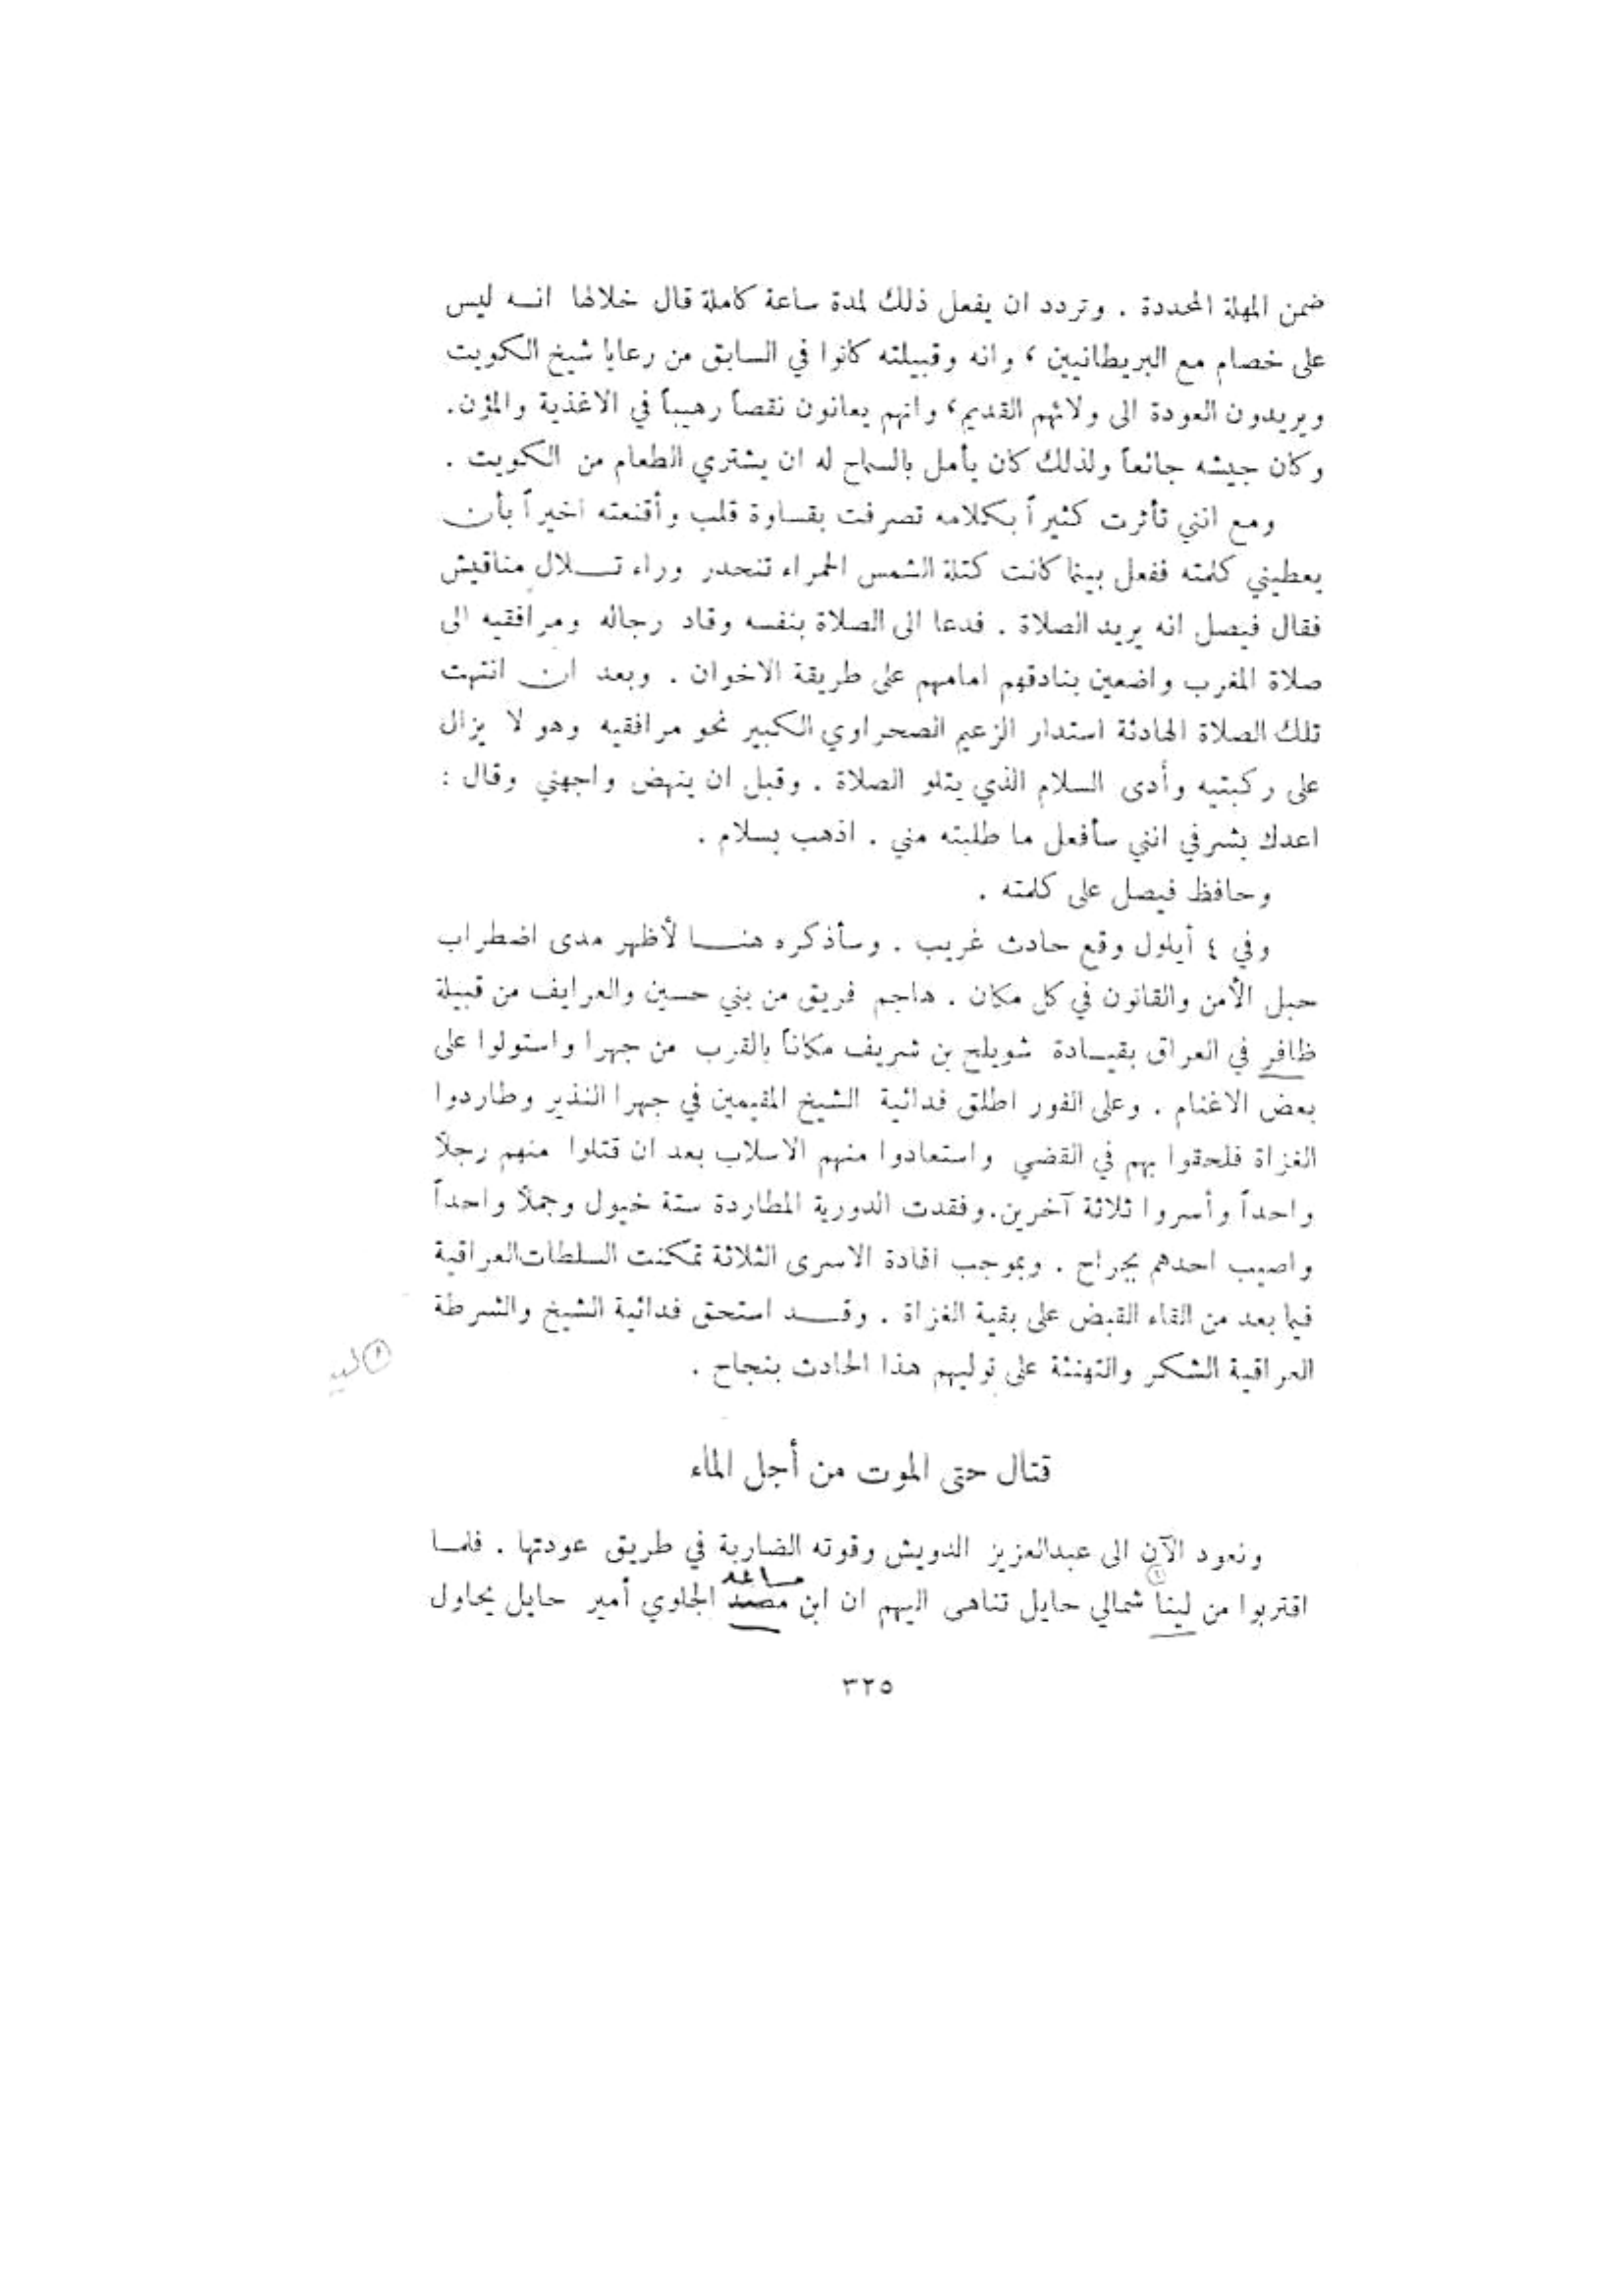 ضمن المهلة المحددة . وتردد ان يفعل ذلك لمدة ساعة كاملة قال خلالها انه ليس
على خصام مع البريطانيين ، وانه وقبيلته كانوا في السابق من رعايا شيخ الكويت
ويريدون العودة الى ولائهم القديم، وانهم يعانون نقصاً رهيباً في الاغذية والمؤن.
وكان جيشه جائعاً ولذلك كان يأمل بالسماح له ان يشتري الطعام من الكويت .
ومع انني تأثرت كثيراً بكلامه تصرفت بقساوة قلب وأقنعته اخيراً بأن
يعطيني كلمته ففعل بينما كانت كتلة الشمس الحمراء تنحدر وراء تلال مناقيش
فقال فيصل انه يريد الصلاة . فدعا الى الصلاة بنفسه وقاد رجاله ومرافقيه الى
صلاة المغرب واضعين بنادقهم امامهم على طريقة الاخوان . وبعد ان انتهت
تلك الصلاة الهادئة استدار الزعيم الصحراوي الكبير نحو مرافقيه وهو لا يزال
على ركبتيه وأدى السلام الذي يتلو الصلاة . وقبل ان ينهض واجهني وقال :
اعدك بشرفي انني سأفعل ما طلبته مني . اذهب بسلام .
وحافظ فيصل على كلمته .
وفي ٤ أيلول وقع حادث غريب . وسأذكره هنا لأظهر مدى اضطراب
حبل الأمن والقانون في كل مكان . هاجم فريق من بني حسين والعرايف من قبيلة
ظافر في العراق بقيادة شويلح بن شريف مكاناً بالقرب من جهرا واستولوا على
بعض الاغنام . وعلى الفور اطلق فدائية الشيخ المقيمين في جهرا النذير وطاردوا
الغزاة فلحقوا بهم في القضي واستعادوا منهم الاسلاب بعد ان قتلوا منهم رجلاً
واحداً وأسروا ثلاثة آخرين. وفقدت الدورية المطاردة ستة خيول وجملاً واحداً
واصيب احدهم بجراح . وبموجب افادة الاسرى الثلاثة تمكنت السلطات العراقية
فيما بعد من القاء القبض على بقية الغزاة . وقد استحق فدائية الشيخ والشرطة
العراقية الشكر والتهنئة على توليهم هذا الحادث بنجاح .
قتال حتى الموت من أجل الماء
ونعود الآن الى عبدالعزيز الدويش وقوته الضاربة في طريق عودتها . فلما
مساعد
اقتربوا من لينا شمالي حايل تناهى اليهم ان ابن مصعد الجلوي أمير حايل يحاول
٣٢٥